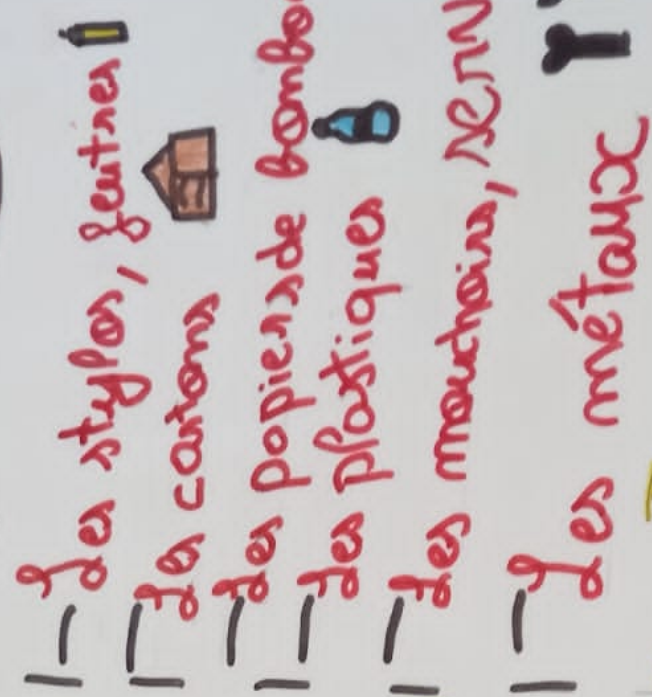 Les stylos, feutres
Les cartons
Les papiers de bonbo
Les plastiques
Les mouchoirs, serv
Les métaux